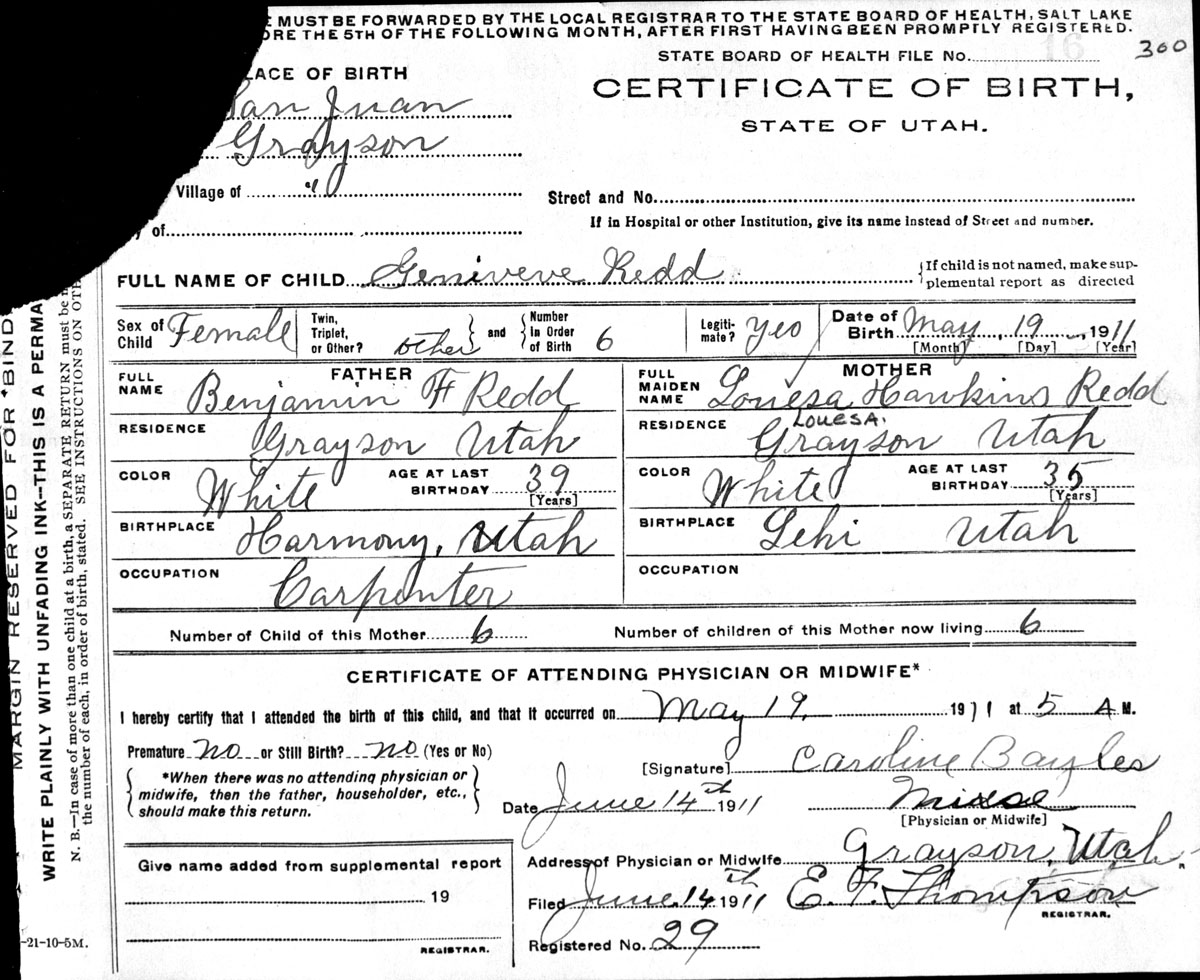 E MUST BE FORWARDED BY THE LOCAL REGISTRAR TO THE STATE BOARD OF HEALTH, SALT LAKE
ORE THE 5TH OF THE FOLLOWING MONTH, AFTER FIRST HAVING BEEN PROMPTLY REGISTERED.
STATE BOARD OF HEALTH FILE No. 16 300
LACE OF BIRTH
CERTIFICATE OF BIRTH,
San Juan
STATE OF UTAH.
Grayson
Village of "
Street and No.
of
If in Hospital or other Institution, give its name instead of Street and number.
FULL NAME OF CHILD Geniveve Redd {If child is not named, make sup-
plemental report as directed
Sex of Child Female Twin, Triplet, or Other? other and Number in Order of Birth 6 Legiti-mate? Yes Date of Birth May 19, 1911
[Month] [Day] [Year]
FATHER MOTHER
FULL NAME Benjamin F Redd FULL MAIDEN NAME Louesa Hawkins Redd
LOUESA.
RESIDENCE Grayson Utah RESIDENCE Grayson Utah
COLOR White AGE AT LAST BIRTHDAY 39 [Years] COLOR White AGE AT LAST BIRTHDAY 35 [Years]
BIRTHPLACE Harmony, Utah BIRTHPLACE Lehi Utah
OCCUPATION Carpenter OCCUPATION
Number of Child of this Mother 6 Number of children of this Mother now living 6
CERTIFICATE OF ATTENDING PHYSICIAN OR MIDWIFE*
I hereby certify that I attended the birth of this child, and that it occurred on May 19, 1911 at 5 A M.
Premature no or Still Birth? no (Yes or No)
[Signature] Caroline Bayles
{*When there was no attending physician or
midwife, then the father, householder, etc.,
should make this return.}
Date June 14th 1911
[Physician or Midwife]
Give name added from supplemental report
19
REGISTRAR.
Address of Physician or Midwife Grayson, Utah.
Filed June 14th 1911 E. F. Thompson
REGISTRAR.
Registered No. 29
-21-10-5M.
MARGIN RESERVED FOR BIND
WRITE PLAINLY WITH UNFADING INK—THIS IS A PERMA
N. B.—In case of more than one child at a birth, a SEPARATE RETURN must be m
the number of each, in order of birth, stated. SEE INSTRUCTIONS ON OTH